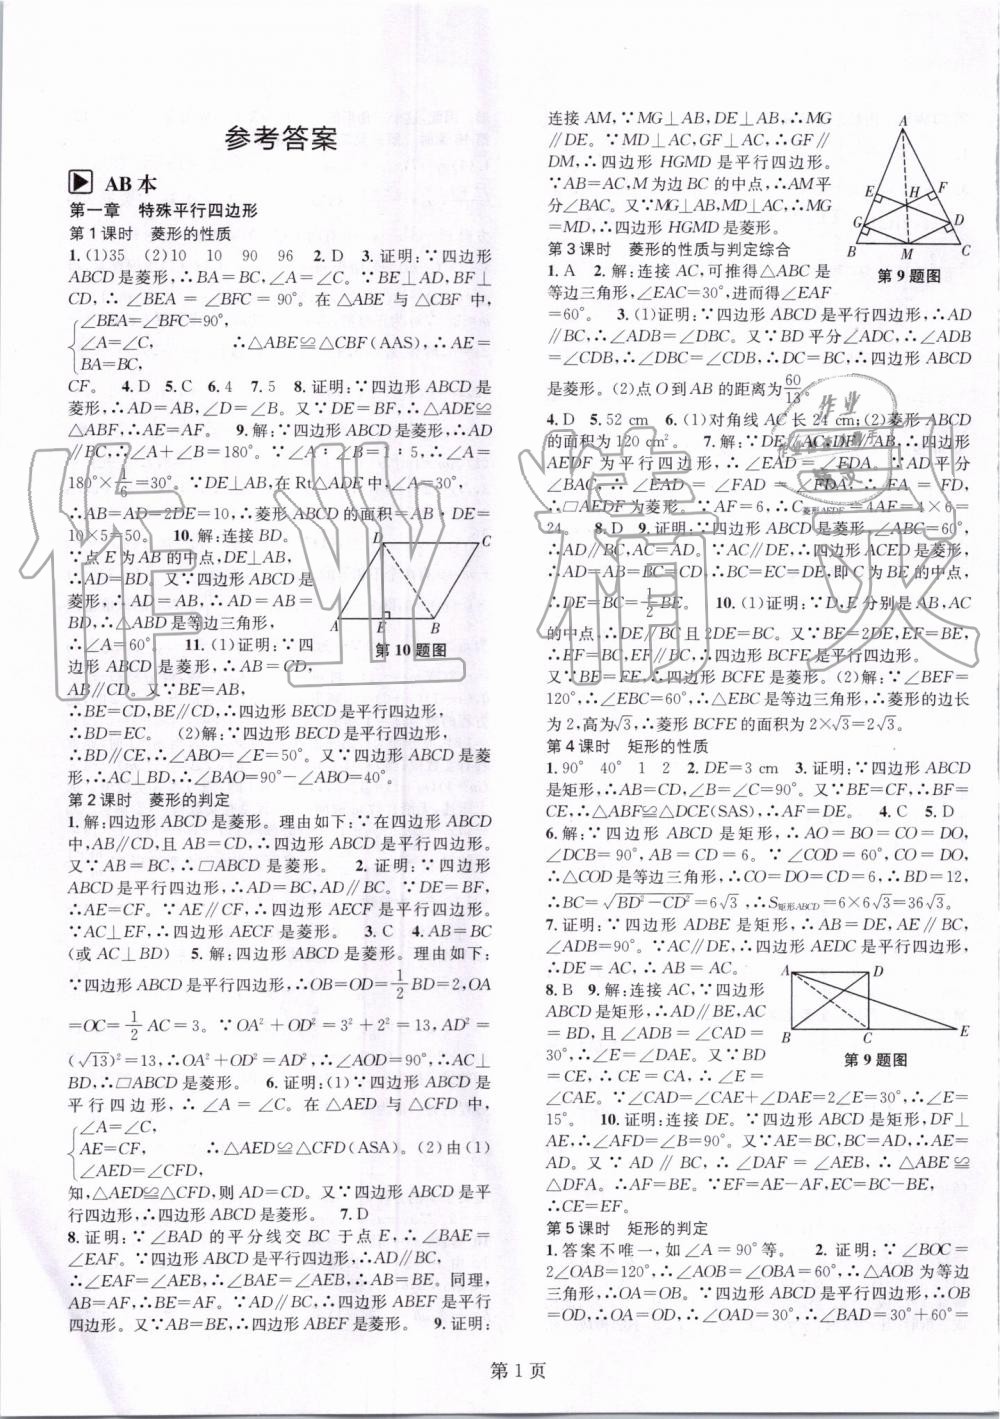 参考答案
AB本
第一章 特殊平行四边形
第1课时 菱形的性质
1.(1)35 (2)10 10 90 96 2.D 3.证明:∵四边形
ABCD是菱形,∴BA=BC,∠A=∠C。∵BE⊥AD,BF⊥
CD,∴∠BEA=∠BFC=90°。在△ABE与△CBF中,
∠BEA=∠BFC=90°,
∠A=∠C, ∴△ABE≌△CBF(AAS),∴AE=
BA=BC,
CF。 4.D 5.C 6.4 7.5 8.证明:∵四边形ABCD是
菱形,∴AD=AB,∠D=∠B。又∵DE=BF,∴△ADE≌
△ABF,∴AE=AF。 9.解:∵四边形ABCD是菱形,∴AD
∥BC,∴∠A+∠B=180°。∵∠A∶∠B=1∶5,∴∠A=
180°×1/6=30°。∵DE⊥AB,在Rt△ADE中,∠A=30°,
∴AB=AD=2DE=10,∴菱形ABCD的面积=AB·DE=
10×5=50。 10.解:连接BD。
∵点E为AB的中点,DE⊥AB,
∴AD=BD。又∵四边形ABCD是
菱形,∴AD=AB,∴AD=AB=
BD,∴△ABD是等边三角形,
∴∠A=60°。 11.(1)证明:∵四
边形ABCD是菱形,∴AB=CD,
AB∥CD。又∵BE=AB,
∴BE=CD,BE∥CD,∴四边形BECD是平行四边形,
∴BD=EC。 (2)解:∵四边形BECD是平行四边形,
∴BD∥CE,∴∠ABO=∠E=50°。又∵四边形ABCD是菱
形,∴AC⊥BD,∴∠BAO=90°-∠ABO=40°。
D C A E B
第10题图
第2课时 菱形的判定
1.解:四边形ABCD是菱形。理由如下:∵在四边形ABCD
中,AB∥CD,且AB=CD,∴四边形ABCD是平行四边形。
又∵AB=BC,∴□ABCD是菱形。 2.证明:∵四边形
ABCD是平行四边形,∴AD=BC,AD∥BC。∵DE=BF,
∴AE=CF。∵AE∥CF,∴四边形AECF是平行四边形。
∵AC⊥EF,∴四边形AECF是菱形。 3.C 4.AB=BC
(或AC⊥BD) 5.解:四边形ABCD是菱形。理由如下:
∵四边形ABCD是平行四边形,∴OB=OD=1/2BD=2,OA
=OC=1/2AC=3。∵OA²+OD²=3²+2²=13,AD²=
(√13)²=13,∴OA²+OD²=AD²,∴∠AOD=90°,∴AC⊥
BD,∴□ABCD是菱形。 6.证明:(1)∵四边形ABCD是
平行四边形,∴∠A=∠C。在△AED与△CFD中,
∠A=∠C,
AE=CF, ∴△AED≌△CFD(ASA)。(2)由(1)
∠AED=∠CFD,
知,△AED≌△CFD,则AD=CD。又∵四边形ABCD是平
行四边形,∴四边形ABCD是菱形。 7.D
8.证明:∵∠BAD的平分线交BC于点E,∴∠BAE=
∠EAF。∵四边形ABCD是平行四边形,∴AD∥BC,
∴∠EAF=∠AEB,∴∠BAE=∠AEB,∴AB=BE。同理,
AB=AF,∴BE=AF。∵AD∥BC,∴四边形ABEF是平行
四边形。又∵AB=BE,∴四边形ABEF是菱形。 9.证明:
连接AM,∵MG⊥AB,DE⊥AB,∴MG
∥DE。∵MD⊥AC,GF⊥AC,∴GF∥
DM,∴四边形HGMD是平行四边形。
∵AB=AC,M为边BC的中点,∴AM平
分∠BAC。又∵MG⊥AB,MD⊥AC,∴MG
=MD,∴四边形HGMD是菱形。
A E H F G D B M C
第9题图
第3课时 菱形的性质与判定综合
1.A 2.解:连接AC,可推得△ABC是
等边三角形,∠EAC=30°,进而得∠EAF
=60°。 3.(1)证明:∵四边形ABCD是平行四边形,∴AD
∥BC,∴∠ADB=∠DBC。又∵BD平分∠ADC,∴∠ADB
=∠CDB,∴∠DBC=∠CDB,∴DC=BC,∴四边形ABCD
是菱形。(2)点O到AB的距离为60/13。
4.D 5.52 cm 6.(1)对角线AC长24 cm;(2)菱形ABCD
的面积为120 cm²。 7.解:∵DE∥AC,DF∥AB,∴四边形
AEDF为平行四边形,∴∠EAD=∠FDA。∵AD平分
∠BAC,∴∠EAD=∠FAD=∠FDA,∴FA=FD,
∴□AEDF为菱形。∵AF=6,∴C菱形AEDF=4AF=4×6=
24。 8.D 9.证明:∵四边形ABCD是菱形,∠ABC=60°,
∴AD∥BC,AC=AD。∵AC∥DE,∴四边形ACED是菱
形,∴AD=AB=DC=DE,∴BC=EC=DE,即C为BE的中点,
∴DE=BC=1/2BE。 10.(1)证明:∵D,E分别是AB,AC
的中点,∴DE∥BC且2DE=BC。又∵BE=2DE,EF=BE,
∴EF=BC,EF∥BC,∴四边形BCFE是平行四边形。
又∵BE=FE,∴四边形BCFE是菱形。(2)解:∵∠BEF=
120°,∴∠EBC=60°,∴△EBC是等边三角形,∴菱形的边长
为2,高为√3,∴菱形BCFE的面积为2×√3=2√3。
第4课时 矩形的性质
1.90° 40° 1 2 2.DE=3 cm 3.证明:∵四边形ABCD
是矩形,∴AB=CD,∠B=∠C=90°。又∵BE=CF,∴BF=
CE,∴△ABF≌△DCE(SAS),∴AF=DE。 4.C 5.D
6.解:∵四边形ABCD是矩形,∴AO=BO=CO=DO,
∠DCB=90°,AB=CD=6。∵∠COD=60°,CO=DO,
∴△COD是等边三角形,∴CO=DO=CD=6,∴BD=12,
∴BC=√BD²-CD²=6√3,∴S矩形ABCD=6×6√3=36√3。
7.证明:∵四边形ADBE是矩形,∴AB=DE,AE∥BC,
∠ADB=90°。∵AC∥DE,∴四边形AEDC是平行四边形,
∴DE=AC,∴AB=AC。
8.B 9.解:连接AC,∵四边形
ABCD是矩形,∴AD∥BE,AC
=BD,且∠ADB=∠CAD=
30°,∴∠E=∠DAE。又∵BD
=CE,∴CE=CA,∴∠E=
∠CAE。∵∠CAD=∠CAE+∠DAE=2∠E=30°,∴∠E=
15°。 10.证明:连接DE。∵四边形ABCD是矩形,DF⊥
AE,∴∠AFD=∠B=90°。又∵AE=BC,BC=AD,∴AE=
AD。又∵AD∥BC,∴∠DAF=∠AEB,∴△ABE≌
△DFA。∴AF=BE。∵EF=AE-AF,EC=BC-BE,
∴CE=EF。
A D B C E
第9题图
第5课时 矩形的判定
1.答案不唯一,如∠A=90°等。 2.证明:∵∠BOC=
2∠OAB=120°,∴∠AOB=60°=∠OAB,∴△AOB为等边
三角形,∴OA=OB。∵四边形ABCD是平行四边形,∴OB
=OD,∴OA=OD,∴∠OAD=30°,∴∠BAD=30°+60°=
第1页
作业精灵